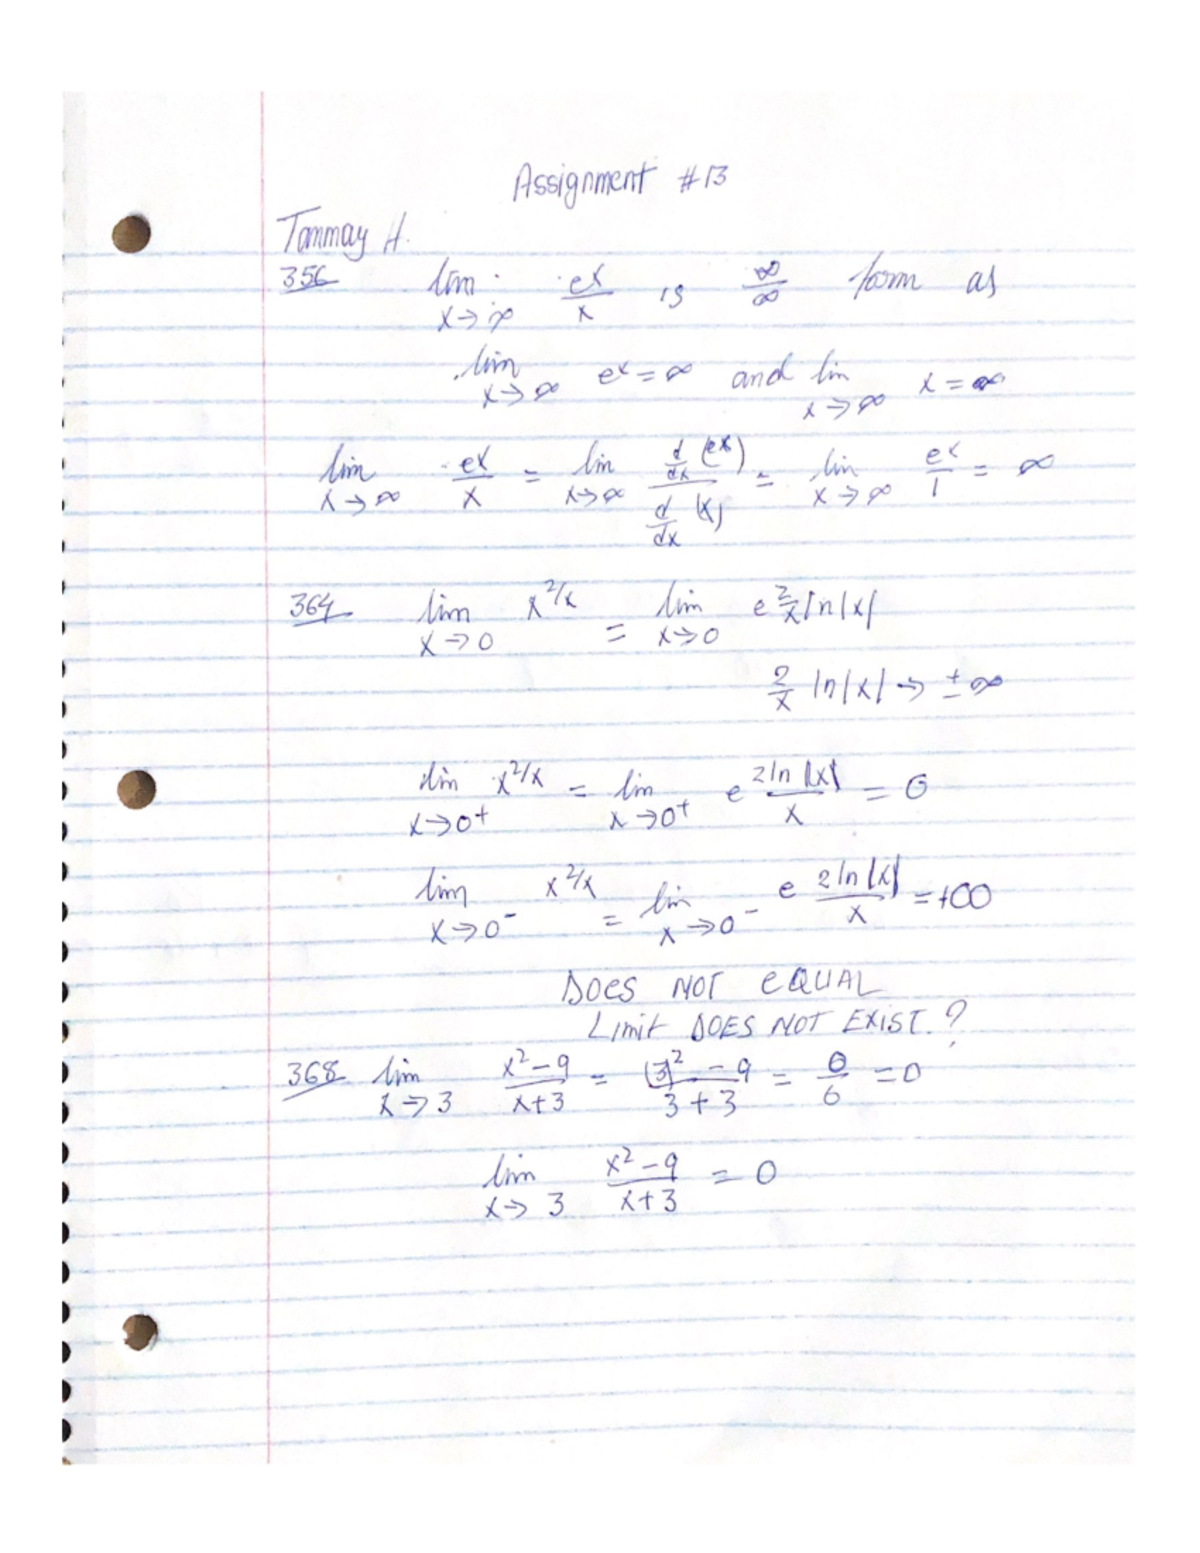 Assignment #13
Tanmay H.
356 lim x→∞ e^x/x is ∞/∞ form as
lim x→∞ e^x = ∞ and lim x→∞ x = ∞
lim x→∞ e^x/x = lim x→∞ d/dx (e^x) / d/dx (x) = lim x→∞ e^x/1 = ∞
364 lim x→0 x^2/x = lim x→0 e^2/x ln|x|
2/x ln|x| → ±∞
lim x→0+ x^2/x = lim x→0+ e 2ln|x|/x = 0
lim x→0- x^2/x = lim x→0- e 2ln|x|/x = +∞
DOES NOT EQUAL
LIMIT DOES NOT EXIST.?
368 lim x→3 x²-9/x+3 = (3)²-9/3+3 = 0/6 = 0
lim x→3 x²-9/x+3 = 0